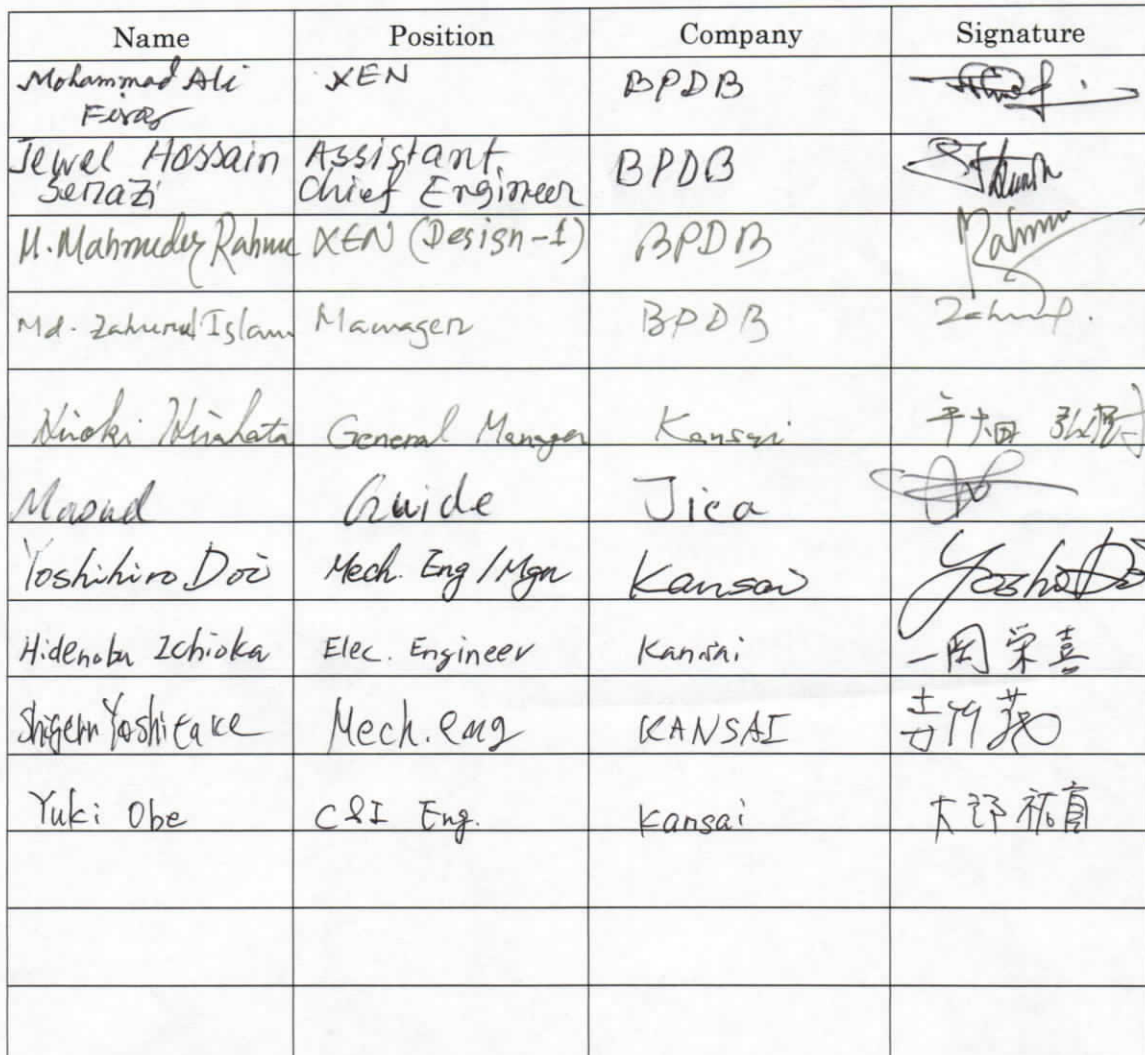 Name Position Company Signature
Mohammad Ali XEN BPDB
Firoz
Jewel Hossain Assistant BPDB
Serazi Chief Engineer
M. Mahmudur Rahman XEN (Design-1) BPDB Rahman
Md. Zahurul Islam Manager BPDB Zahurul.
Hiroki Hirahata General Manager Kansai
Masud Guide Jica
Yoshihiro Doi Mech. Eng/Mgr Kansai Yoshi Doi
Hidenobu Ichioka Elec. Engineer Kansai 一岡 栄喜
Shigeru Yoshitake Mech. eng KANSAI 吉竹 茂
Yuki Obe C&I Eng. Kansai